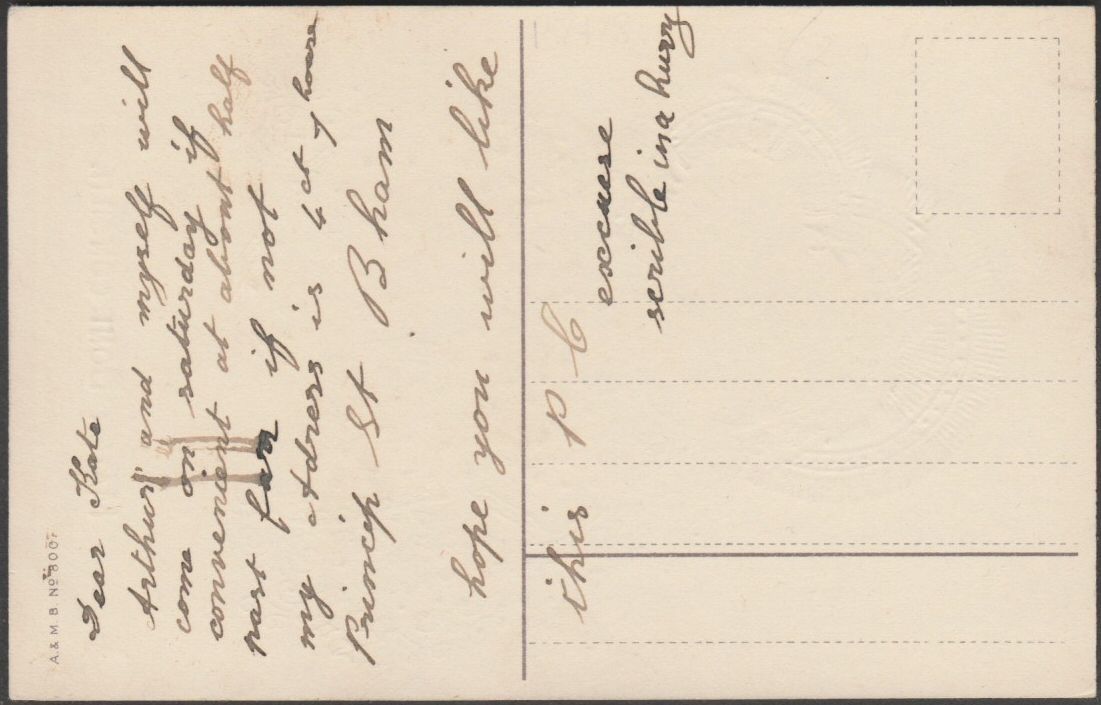 Dear Kate
Arthur and myself will
come on saturday if
convenient at about half
past four if not
my adress is 4 ct 7 house
Princip St B ham
hope you will like
this P C
excuse
scrible in a hurry
A. & M. B. No 800